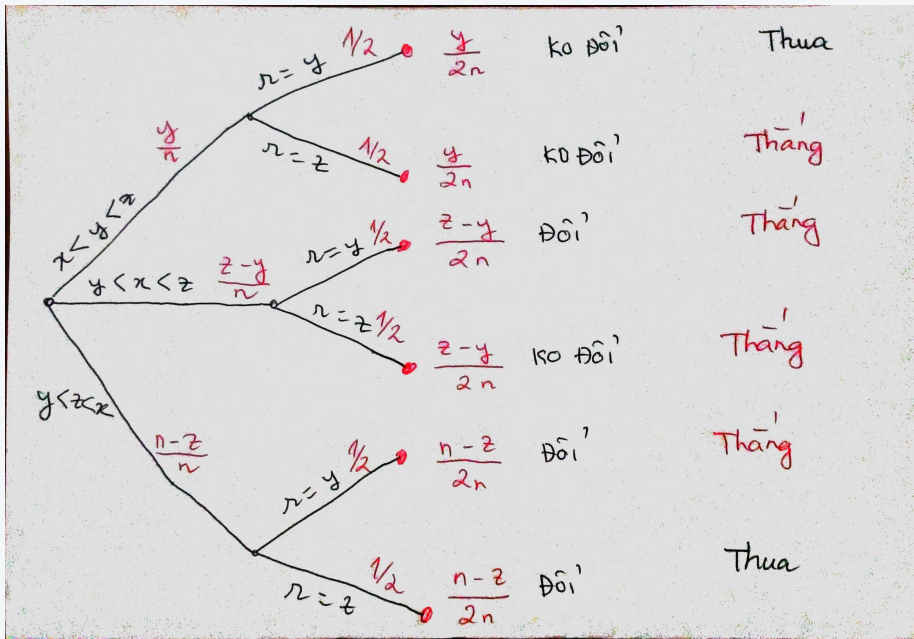 r = y 1/2 y/2n KO ĐỔI Thua
y/n
r = z 1/2 y/2n KO ĐỔI Thắng
x < y < z
r = y 1/2 z-y/2n ĐỔI Thắng
y < x < z z-y/n
r = z 1/2 z-y/2n KO ĐỔI Thắng
y<z<x
n-z/n
r = y 1/2 n-z/2n ĐỔI Thắng
r = z 1/2 n-z/2n ĐỔI Thua